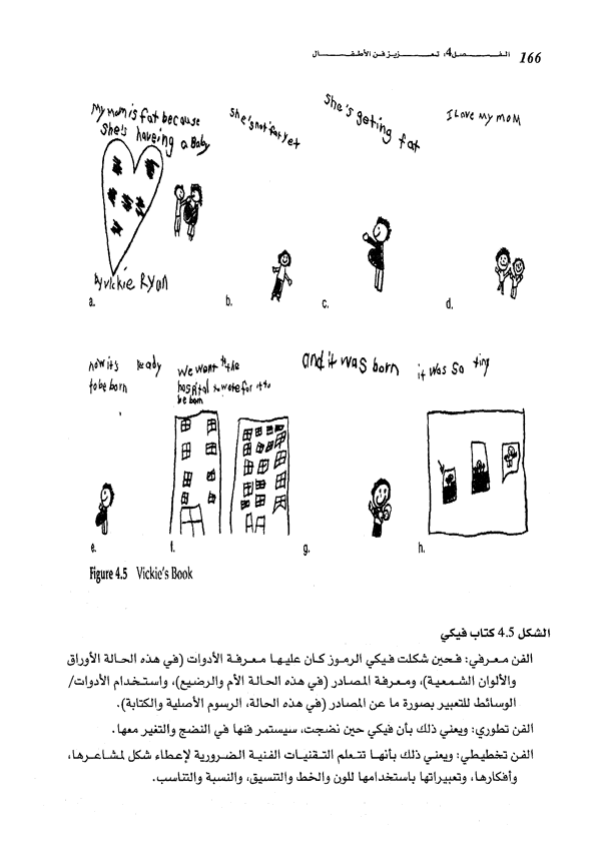 166 الفـــــصل4: تعـــــزيز فن الأطفـــــال
My mom is fat because
she's haveing a Baby
by Vickie Ryan
a.
she's not fat yet
b.
she's geting fat
c.
I Love My MOM
d.
now it's ready
to be born
e.
We want to the
hospital to wate for it to
be born
f.
and it was born
g.
it was so tiny
h.
Figure 4.5 Vickie's Book
الشكل 4.5 كتاب فيكي
الفن معرفي: فحين شكلت فيكي الرموز كان عليها معرفة الأدوات (في هذه الحالة الأوراق
والألوان الشمعية)، ومعرفة المصادر (في هذه الحالة الأم والرضيع)، واستخدام الأدوات/
الوسائط للتعبير بصورة ما عن المصادر (في هذه الحالة، الرسوم الأصلية والكتابة).
الفن تطوري: ويعني ذلك بأن فيكي حين نضجت، سيستمر فنها في النضج والتغير معها.
الفن تخطيطي: ويعني ذلك بأنها تتعلم التقنيات الفنية الضرورية لإعطاء شكل لمشاعرها،
وأفكارها، وتعبيراتها باستخدامها للون والخط والتنسيق، والنسبة والتناسب.